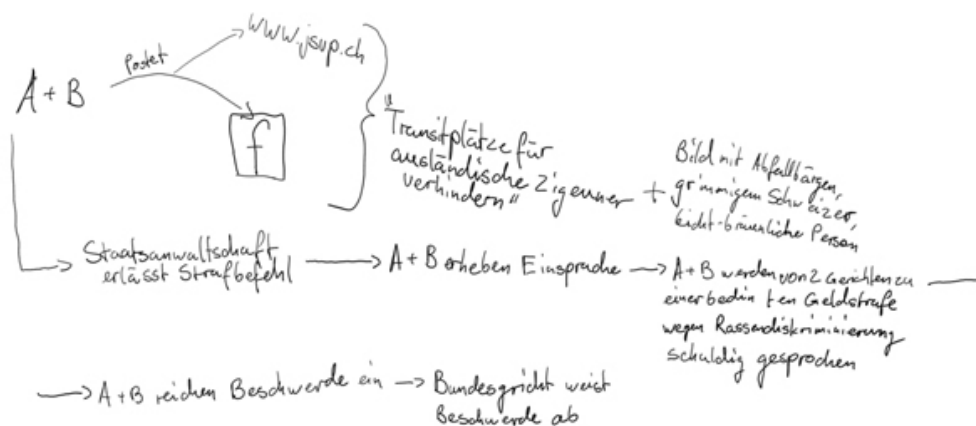 www.jsvp.ch
Postet
A + B
f
"Transitplätze für
ausländische Zigeuner
verhindern"
+
Bild mit Abfallbärgen,
grimmigem Schweizer,
leicht-bräunliche Person
Staatsanwaltschaft
erlässt Strafbefehl
A + B erheben Einsprache
A + B werden von 2 Gerichten zu
einer bedin ten Geldstrafe
wegen Rassendiskriminierung
schuldig gesprochen
A + B reichen Beschwerde ein
Bundesgricht weist
Beschwerde ab